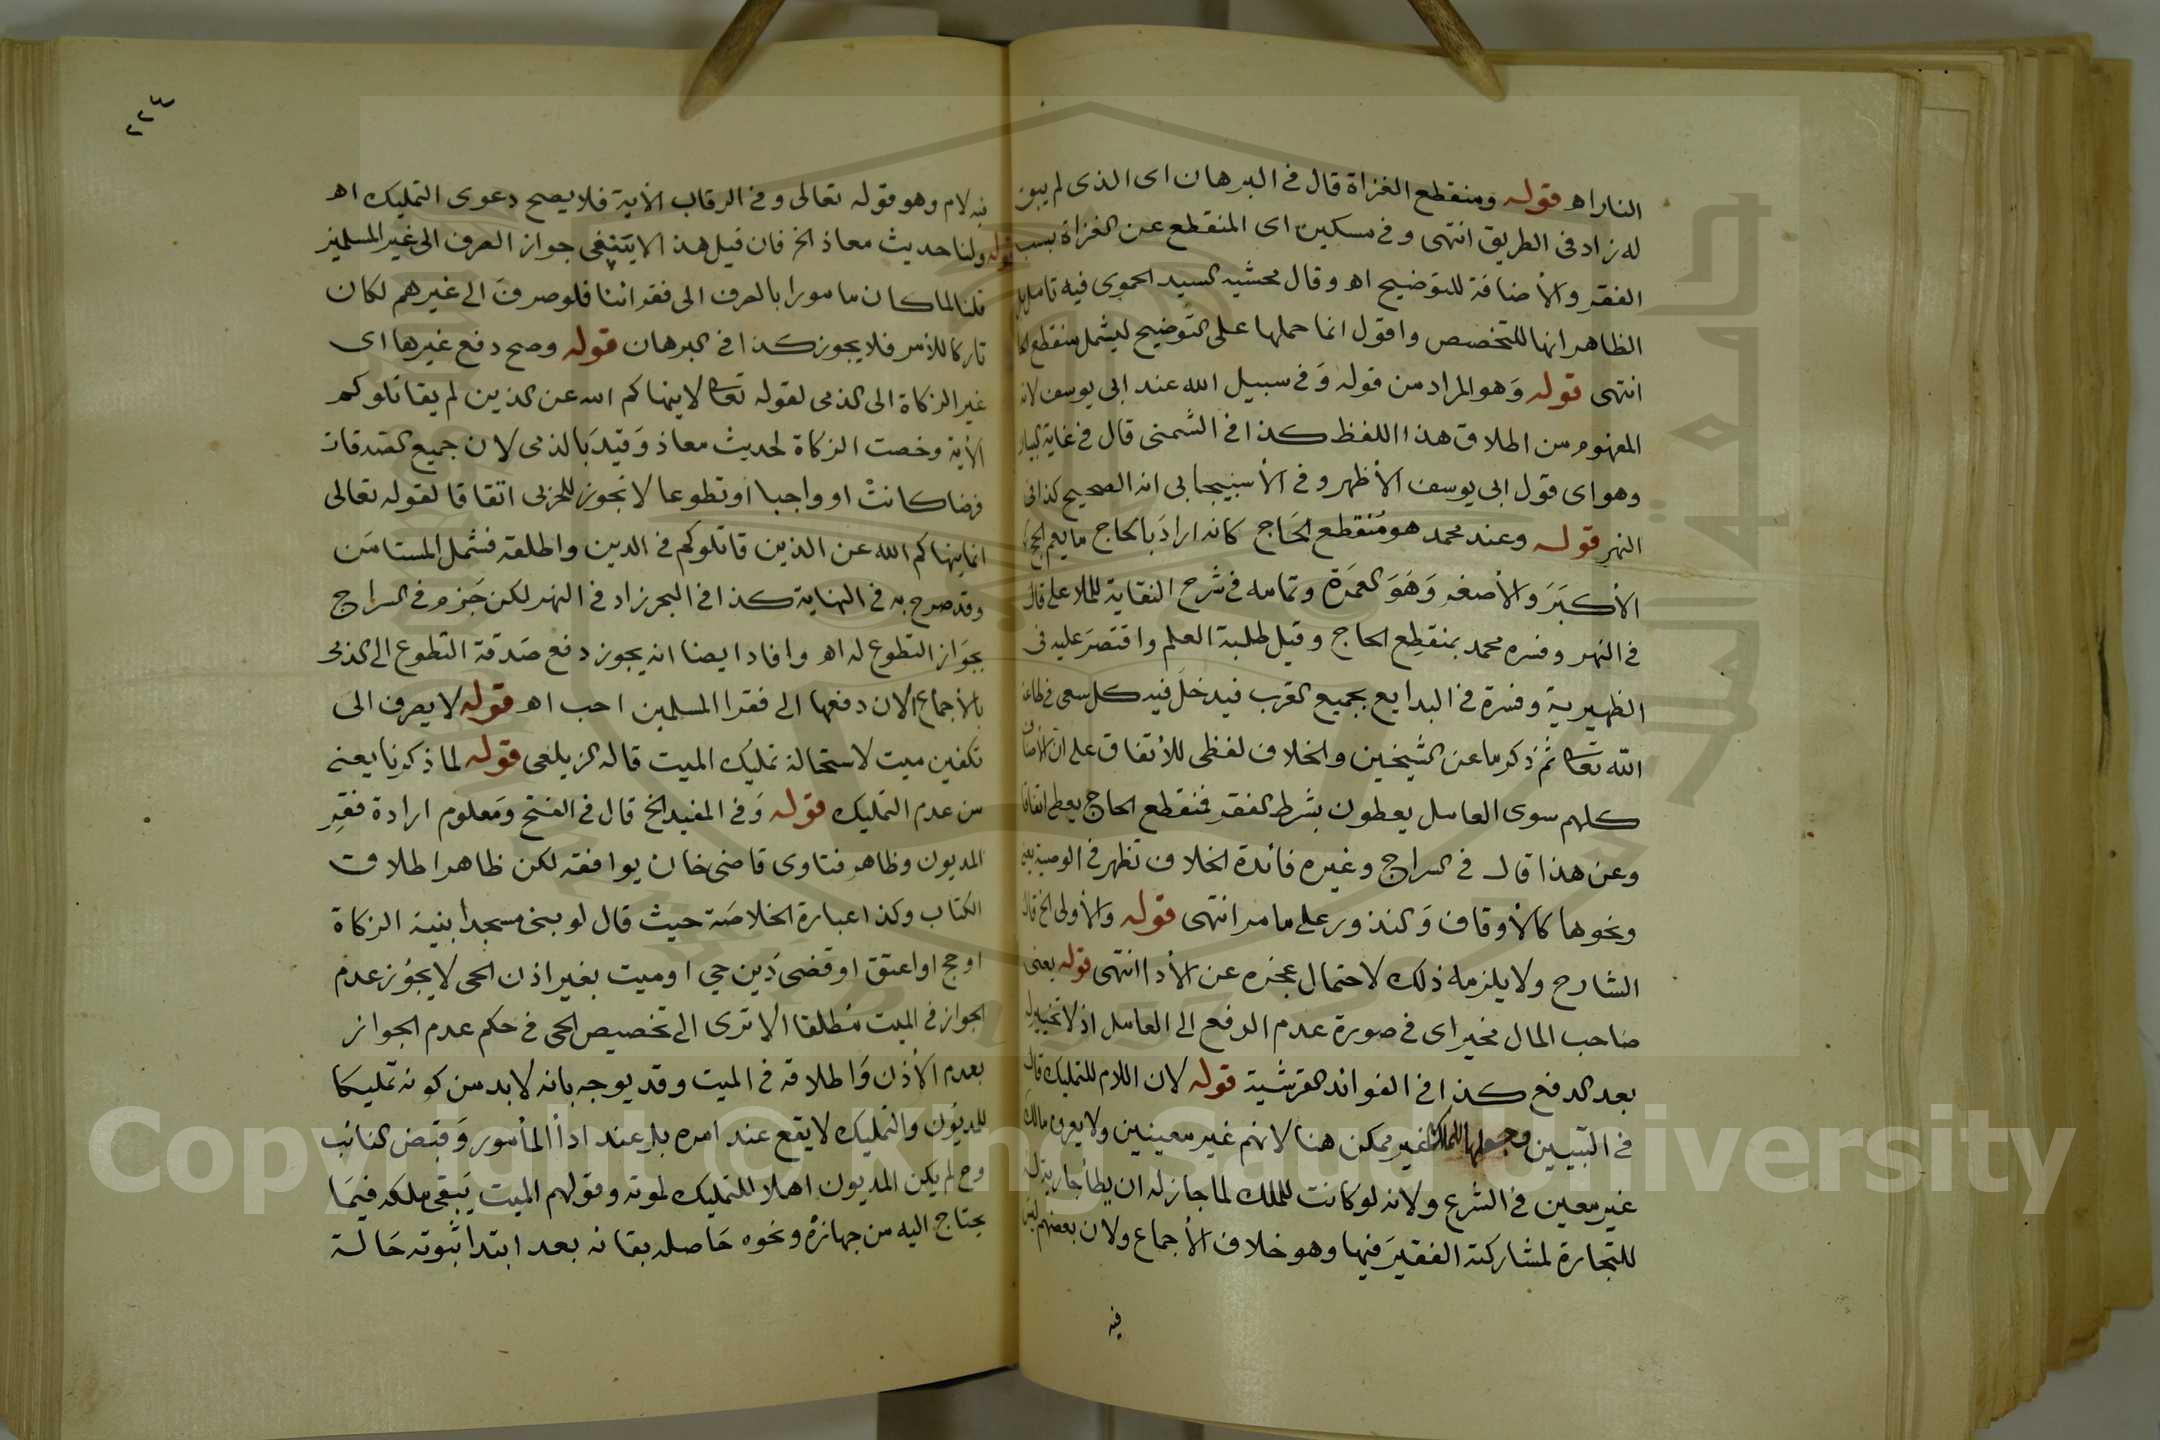 النار اه قوله ومنقطع الغزاة قال في البرهان اى الذى لم يجوز
له زاد في الطريق انتهى وفي مسكين اى المنقطع عن الغزاة بسبب
الفقر والأضافة للتوضيح اه وقال محشيه السيد الحموى فيه تامل بل
الظاهر انها للتخصص واقول انما حملها على التوضيح ليشمل منقطع
انتهى قوله وهو المراد من قوله وفي سبيل الله عند ابى يوسف لانه
المفهوم من اطلاق هذا اللفظ كذا في الشمنى قال في غاية البيان
وهو اى قول ابى يوسف الأظهر وفي الأسبيجابى انه الصحيح كذا في
النهر قوله وعند محمد هو منقطع الحاج كانه اراد بالحاج ما يعم الحج
الأكبر والأصغر وهو العمرة وتمامه في شرح النقاية للملا على قال
في النهر وفسره محمد بمنقطع الحاج وقيل طلبة العلم واقتصر عليه في
الظهيرية وفسره في البدايع بجميع القرب فيدخل فيه كل سعى في طاعة
الله تعا ثم ذكر ما عن الشيخين والخلاف لفظى للأتفاق على ان الأصناف
كلهم سوى العامل يعطون بشرط الفقر فمنقطع الحاج يعطى اتفاقا
وعن هذا قال في السراج وغيره فائدة الخلاف تظهر في الوصية يعنى
ونحوها كالأوقاف والنذور على ما مر انتهى قوله والأولى الخ قال
الشارح ولا يلزمه ذلك لاحتمال عجزه عن الأدا انتهى قوله يعنى
صاحب المال مخير اى في صورة عدم الدفع الى العامل اذ لا تخيير له
بعد الدفع كذا في الفوائد القرشية قوله لان اللام للتمليك قال
في التبيين وجعلها للملك غير ممكن هنا لانهم غير معينين ولا يعرف مالك
غير معين في الشرع ولانه لو كانت للملك لما جاز له ان يطأ جارية له
للتجارة لمشاركة الفقير فيها وهو خلاف الأجماع ولان بعضهم ليس
فيه
٢٢٤
فيه لام وهو قوله تعالى وفي الرقاب الأية فلا يصح دعوى التمليك اه
قوله ولنا حديث معاذ الخ فان قيل هذا لا ينفى جواز الصرف الى غير المسلمين
قلنا لما كان مامورا بالصرف الى فقرائنا فلو صرف الى غيرهم لكان
تاركا للأمر فلا يجوز كذا في البرهان قوله وصح دفع غيرها اى
غير الزكاة الى الذمى لقوله تعا لا ينهاكم الله عن الذين لم يقاتلوكم
الأية وخصت الزكاة لحديث معاذ وقيد بالذمى لان جميع الصدقات
فرضا كانت او واجبا او تطوعا لا تجوز للحربى اتفاقا لقوله تعالى
انما ينهاكم الله عن الذين قاتلوكم في الدين واطلقه فشمل المستامن
وقد صرح به في النهاية كذا في البحر زاد في النهر لكن جزم في السراج
بجواز التطوع له اه وافاد ايضا انه يجوز دفع صدقة التطوع الى الذمى
بالأجماع الا ان دفعها الى فقرا المسلمين احب اه قوله لا يصرف الى
تكفين ميت لاستحالة تمليك الميت قاله الزيلعى قوله لما ذكرنا يعنى
من عدم التمليك قوله وفي المفيد الخ قال في الفتح ومعلوم ارادة فقر
المديون وظاهر فتاوى قاضى خان يوافقه لكن ظاهر اطلاق
الكتاب وكذا عبارة الخلاصة حيث قال لو بنى مسجدا بنية الزكاة
او حج او اعتق او قضى دين حي او ميت بغير اذن الحى لا يجوز عدم
الجواز في الميت مطلقا الا ترى الى تخصيص الحى في حكم عدم الجواز
بعدم الأذن واطلاقه في الميت وقد يوجه بانه لا بد من كونه تمليكا
للمديون والتمليك لا يقع عند امره بل عند ادأ المأمور وقبض النائب
وح لم يكن المديون اهلا للتمليك لموته وقولهم الميت يبقى ملكه فيما
يحتاج اليه من جهازة ونحوه حاصله بقائه بعد ابتدا ثبوته حالة
Copyright © King Saud University